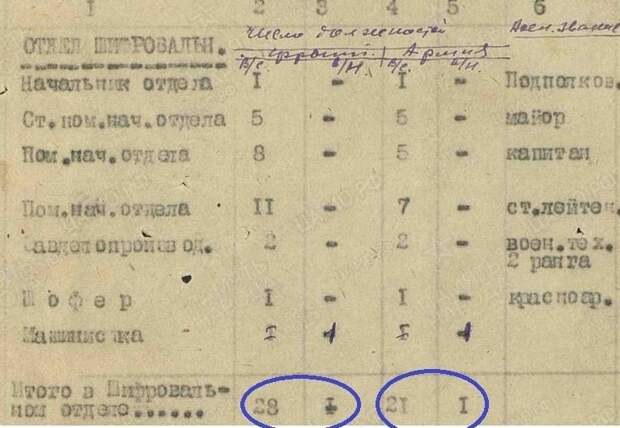 I 2 3 4 5 6
Число должностей Воен. звание
ОТДЕЛ ШИФРОВАЛЬН. фронт Армия
в/с. в/н. в/с. в/н.
Начальник отдела I - I - Подполков.
Ст.пом.нач.отдела 5 - 5 - майор
Пом.нач.отдела 8 - 5 - капитан
Пом.нач.отдела II - 7 - ст.лейтен.
Завделопроизвод. 2 - 2 - воен.тех.
2 ранга
Шофер I - I - красноар.
Машинистка I 1 I 1
Итого в Шифроваль-
ном отделе...... 28 I 21 I